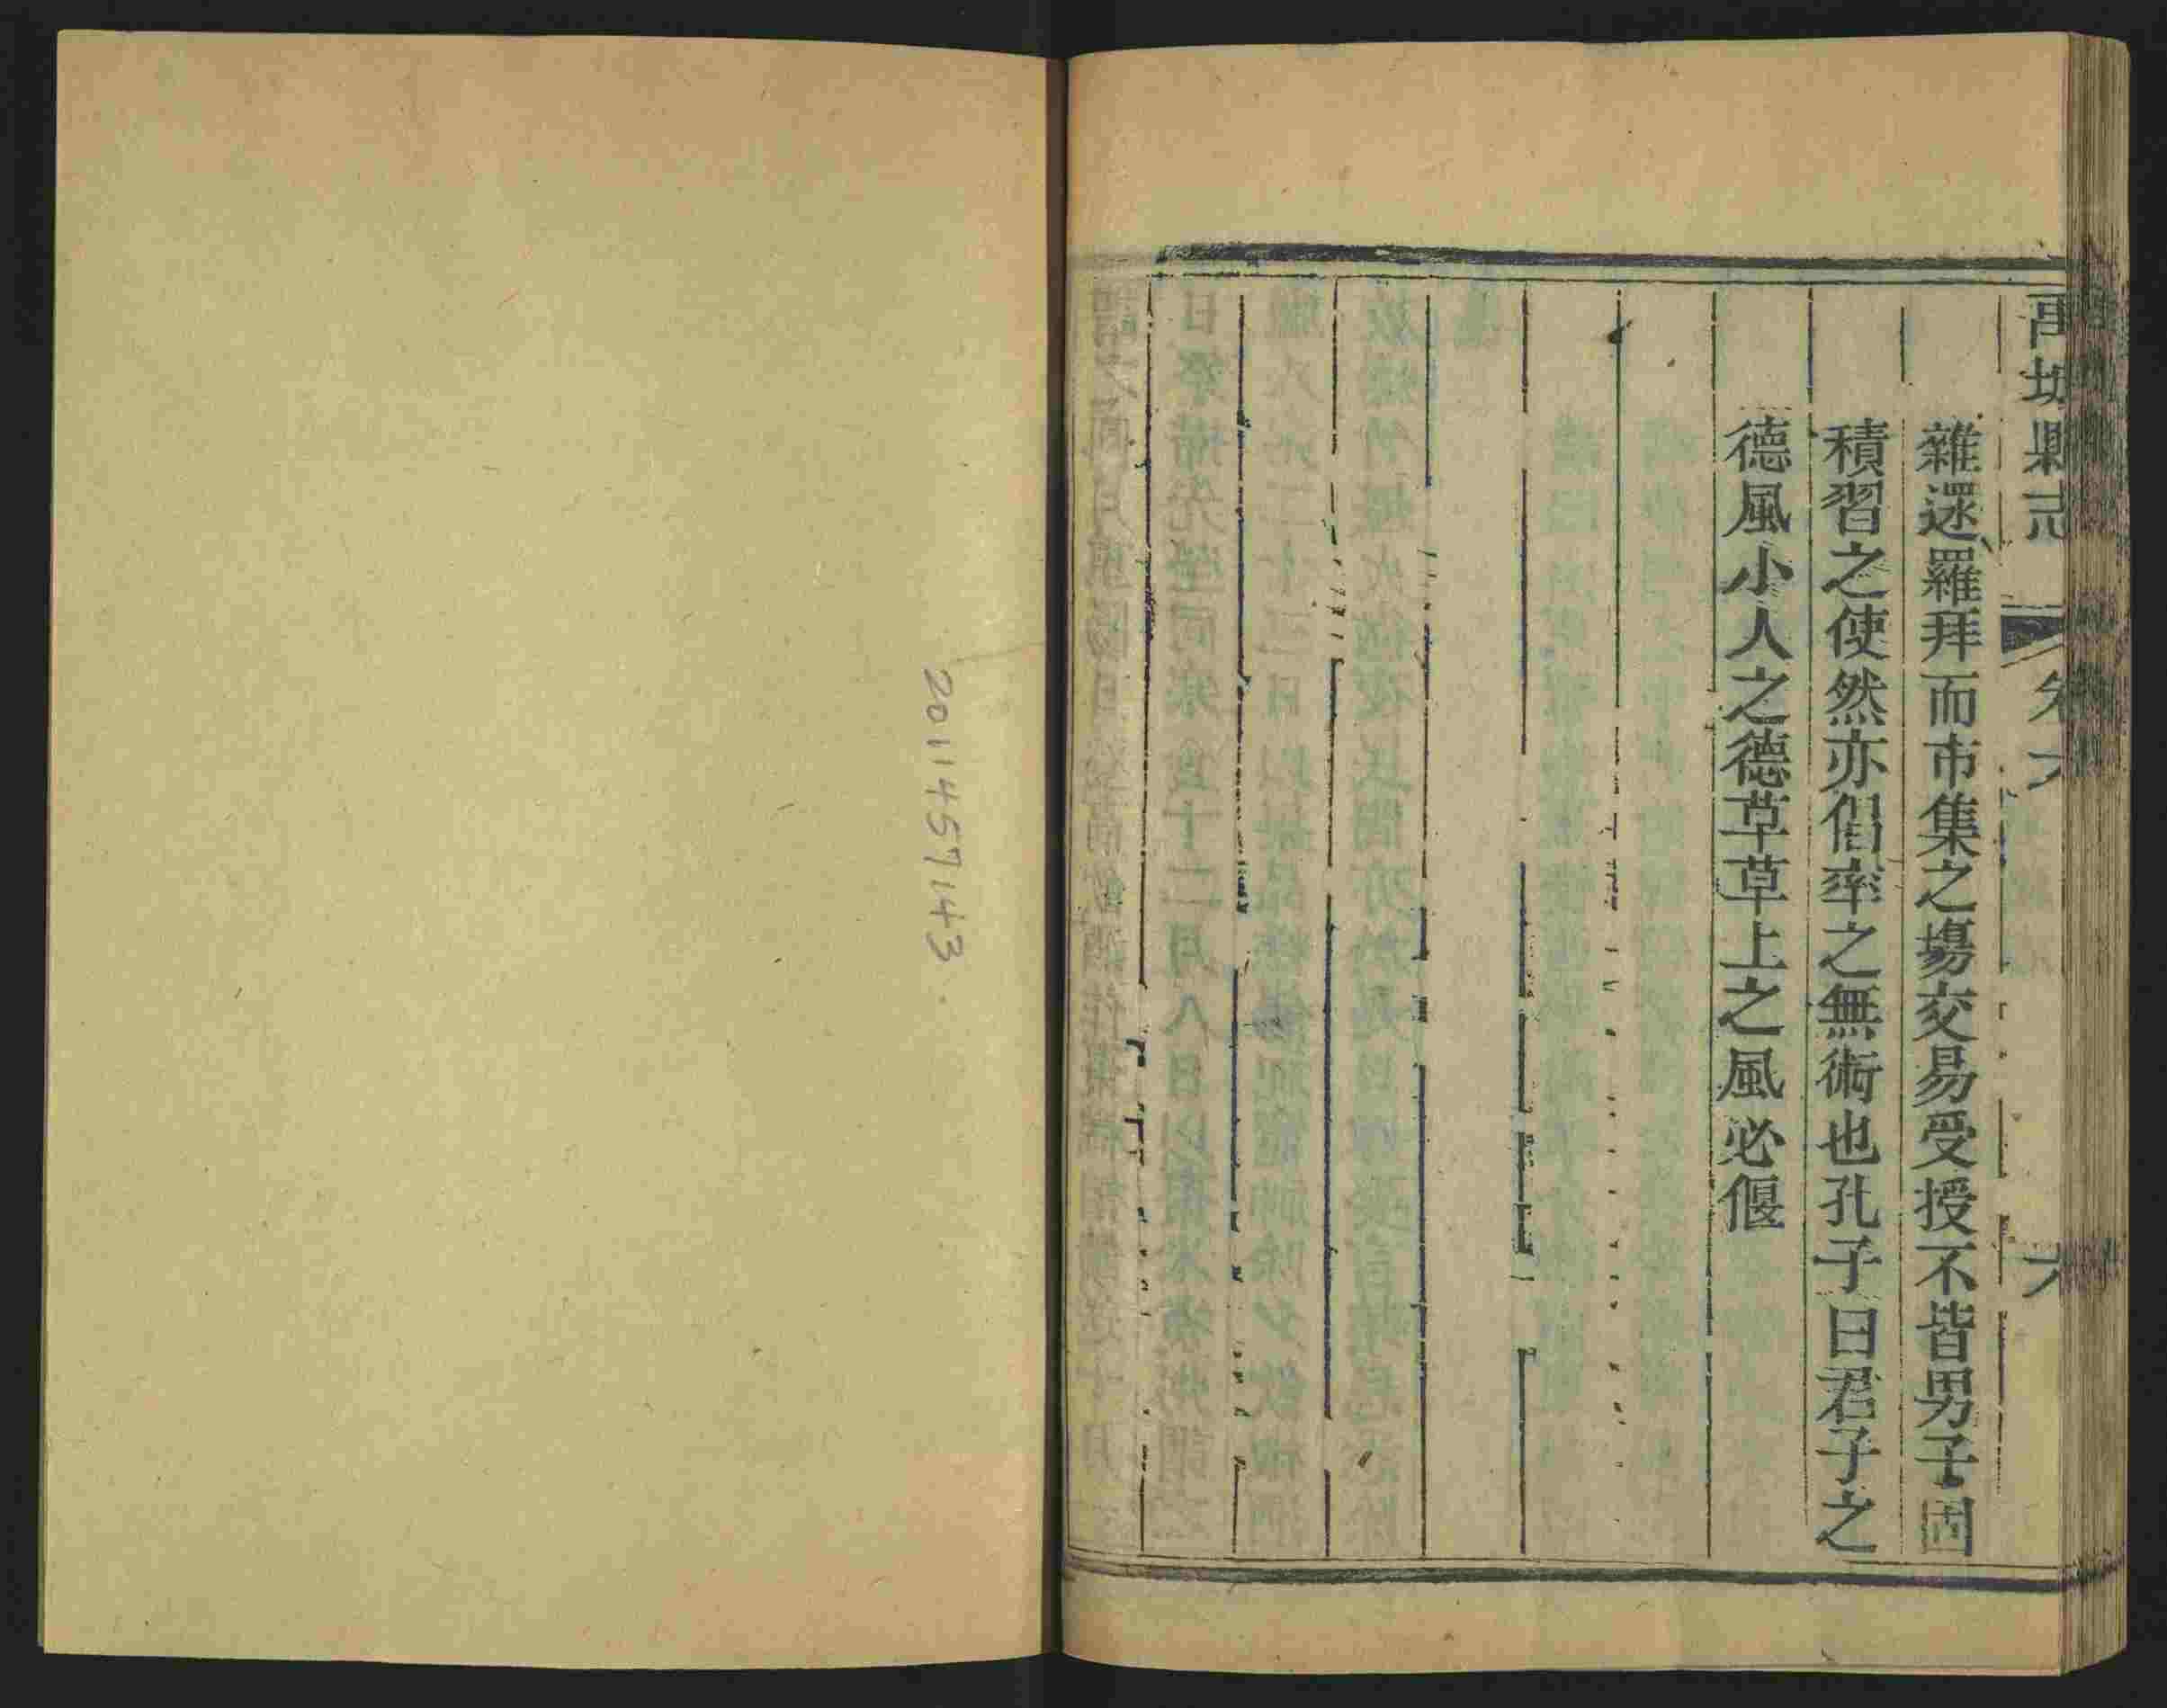 禹城縣志 卷六 六
雜還羅拜而市集之場交易受授不皆男子固
積習之使然亦倡率之無術也孔子曰君子之
德風小人之德草草上之風必偃
2011457143